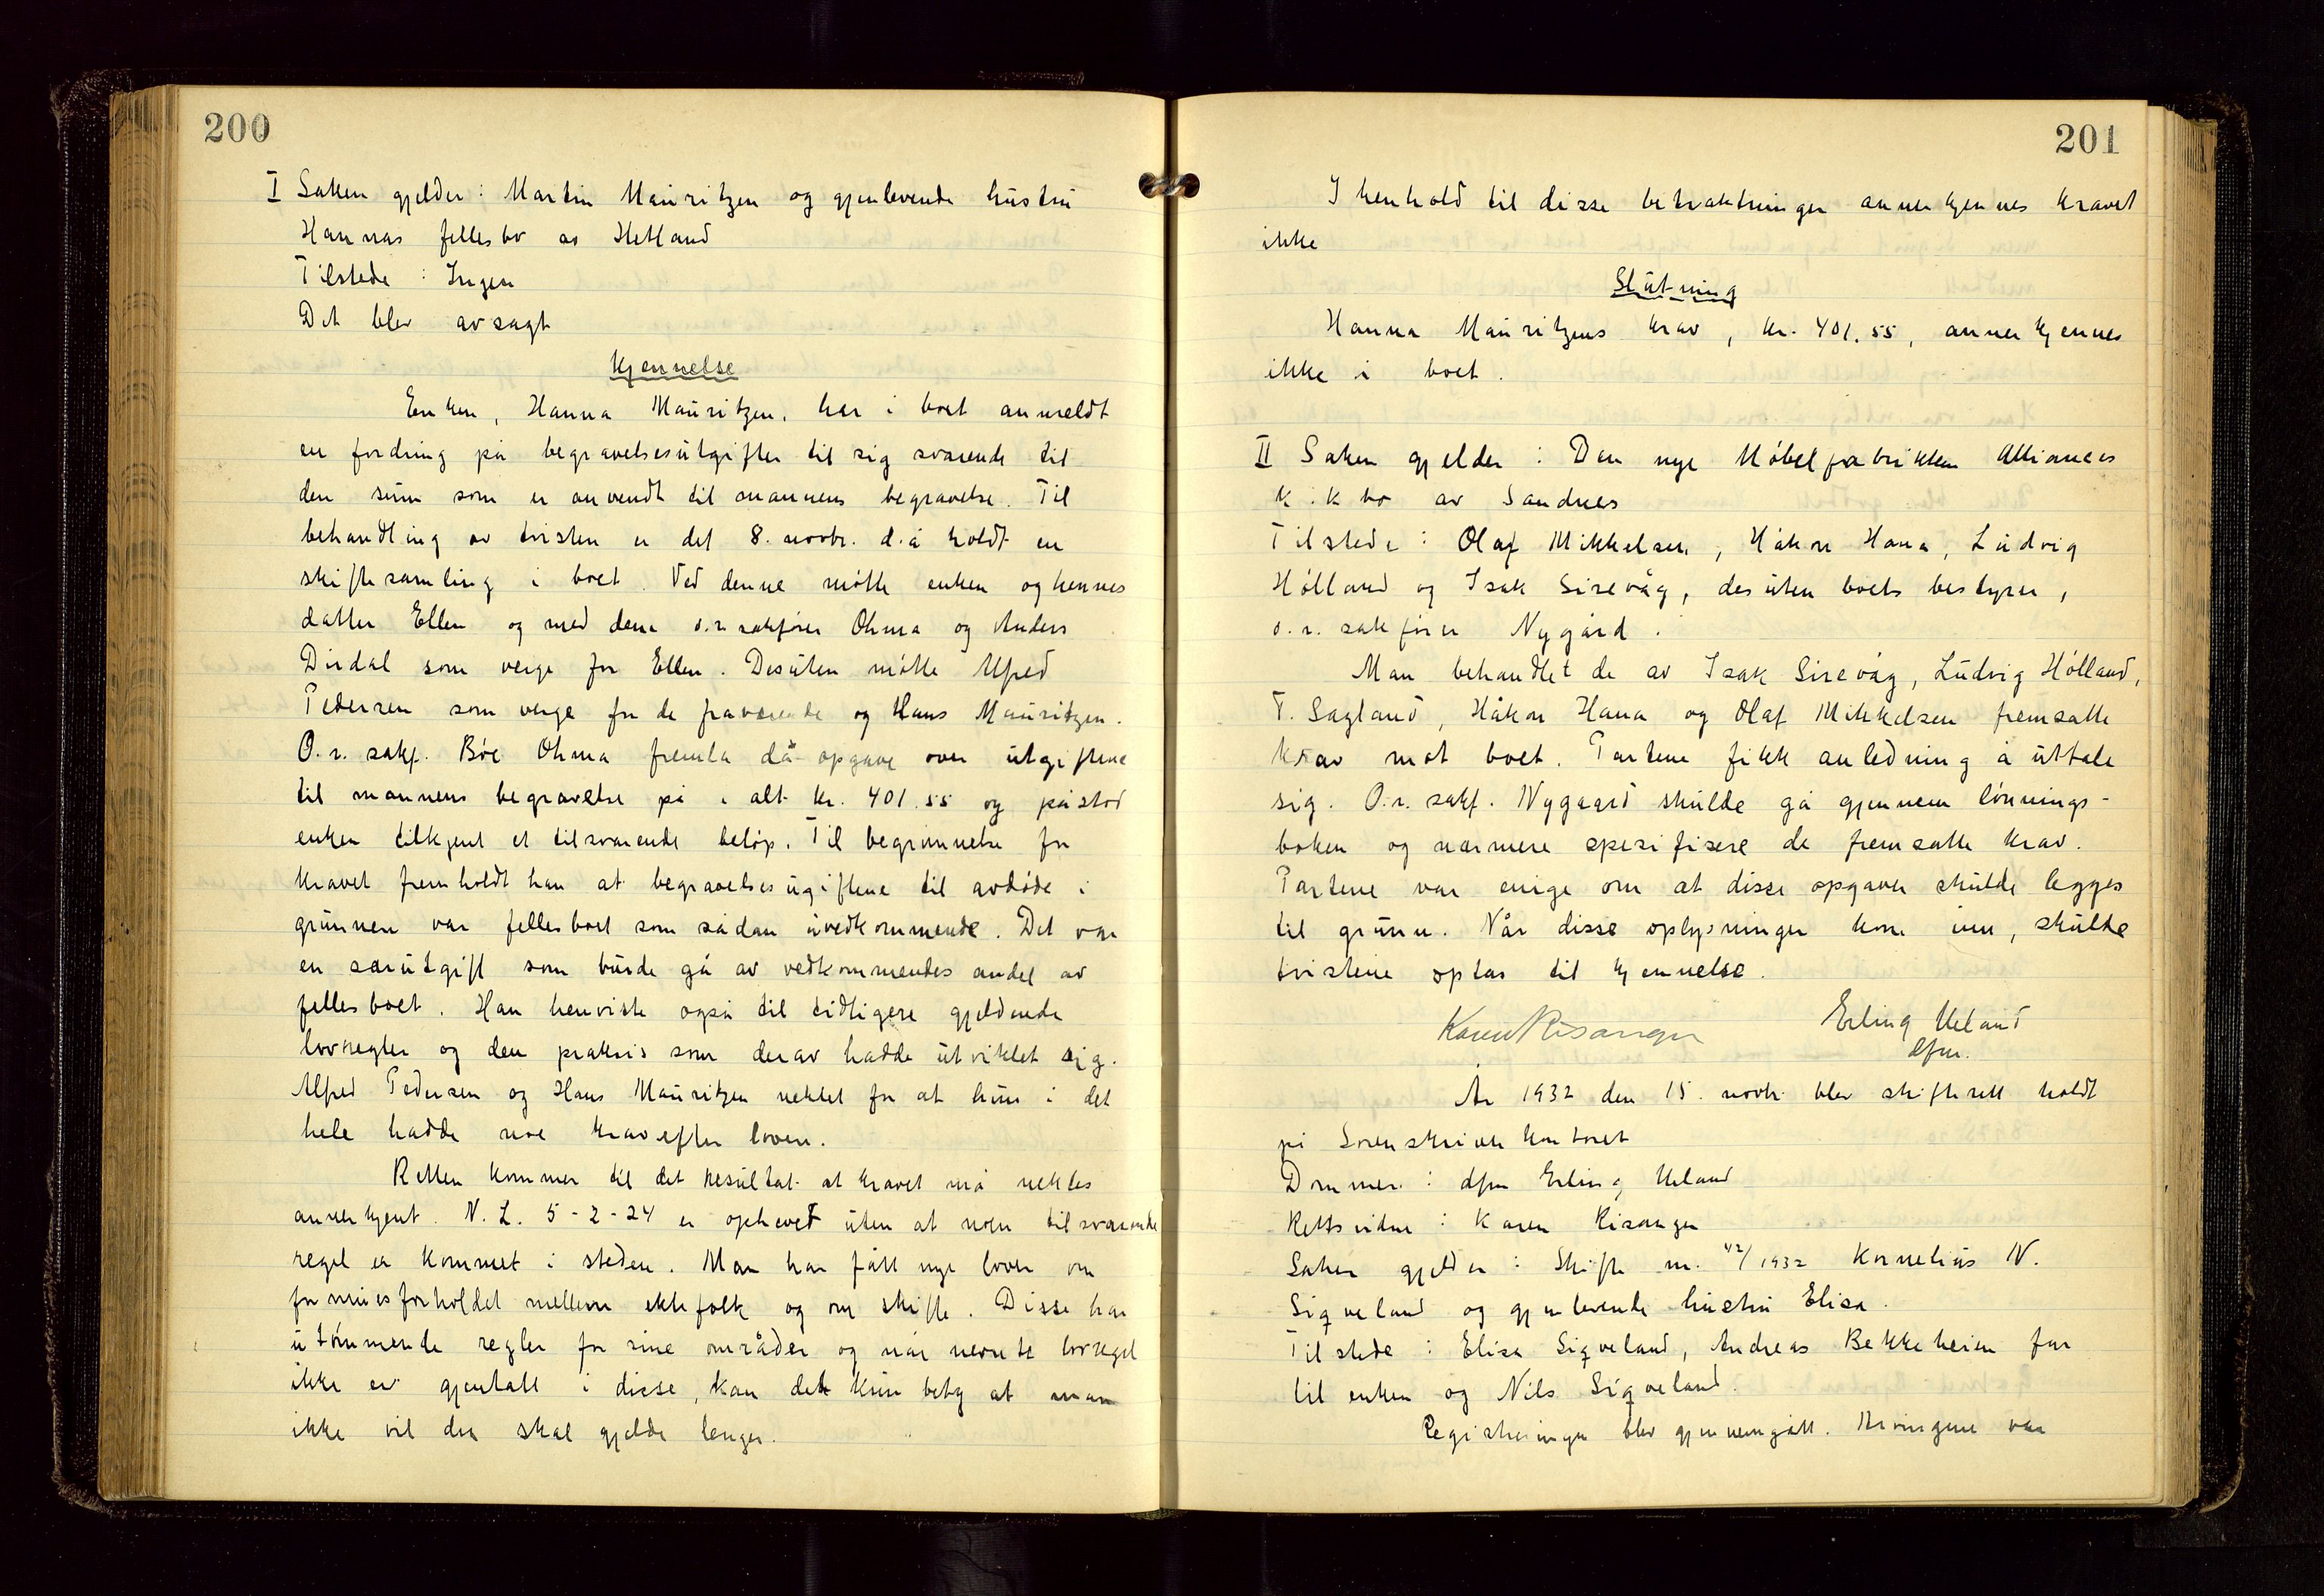 200
I Saken gjelder: Martin Mauritzen og gjenlevende hustru
Hannas fellesbo av Hetland
Tilstede: Ingen
Det blev avsagt
Kjennelse
Enken, Hanna Mauritzen, har i boet anmeldt
en fordring på begravelsesutgifter til sig svarende til
den sum som er anvendt til mannens begravelse. Til
behandling av tvisten er det 8. novbr. d.å holdt en
skiftesamling i boet. Ved denne møtte enken og hennes
datter Ellen og med dem o.r.sakfører Ohma og Anders
Dirdal som verge for Ellen. Desuten møtte Alfred
Pedersen som verge for de fraværende og Hans Mauritzen.
O.r. sakf. Bøe Ohma fremla då opgave over utgiftene
til mannens begravelse på i alt kr. 401.55 og påstod
enken tilkjent et tilsvarende beløp. Til begrunnelse for
kravet fremholdt han at begravelsesugiftene til avdøde i
grunnen var fellesboet som sådan uvedkommende. Det var
en særutgift som burde gå av vedkommendes andel av
fellesboet. Han henviste også til tidligere gjeldende
lovregler og den praksis som derav hadde utviklet sig.
Alfred Pedersen og Hans Mauritzen nektet for at hun i det
hele hadde noe krav efter loven.
Retten kommer til det resultat at kravet må nektes
annerkjent. N.L. 5-2-24 er ophevet uten at noen tilsvarende
regel er kommet i steden. Man har fått nye lover om
formuesforholdet mellem ektefolk og om skifte. Disse har
uttømmende regler for sine områder og når nevnte lovregel
ikke er gjentatt i disse, kan det kun bety at man
ikke vil den skal gjelde lenger.
201
I henhold til disse betraktninger annerkjennes kravet
ikke
Slutning
Hanna Mauritzens krav, kr. 401.55, annerkjennes
ikke i boet.
II Saken gjelder: Den nye Møbelfabrikken Alliances
k.k bo av Sandnes
Tilstede: Olaf Mikkelsen, Håkon Hana, Ludvig
Hølland og Isak Sirevåg, desuten boets bestyrer,
o.r. sakfører Nygård.
Man behandlet de av Isak Sirevåg, Ludvig Hølland,
T. Sagland, Håkon Hana og Olaf Mikkelsen fremsatte
krav mot boet. Partene fikk anledning å uttale
sig. O.r. sakf. Nygaard skulde gå gjennem lønnings-
boken og nærmere spesifisere de fremsatte krav.
Partene var enige om at disse opgaver skulde legges
til grunn. Når disse oplysninger kom inn, skulde
tvistene optas til kjennelse.
Karen Risanger Erling Ueland
dfm.
År 1932 den 15. novbr. blev skifterett holdt
på Sorenskriverkontoret
Dommer: dfm Erling Ueland
Rettsvidne: Karen Risanger
Saken gjelder: Skifte nr. 42/1932 Kornelius N.
Sigveland og gjenlevende hustru Elisa.
Tilstede: Elisa Sigveland, Andreas Bekkeheien far
til enken og Nils Sigveland.
Registreringen blev gjennemgått. Arvingene var